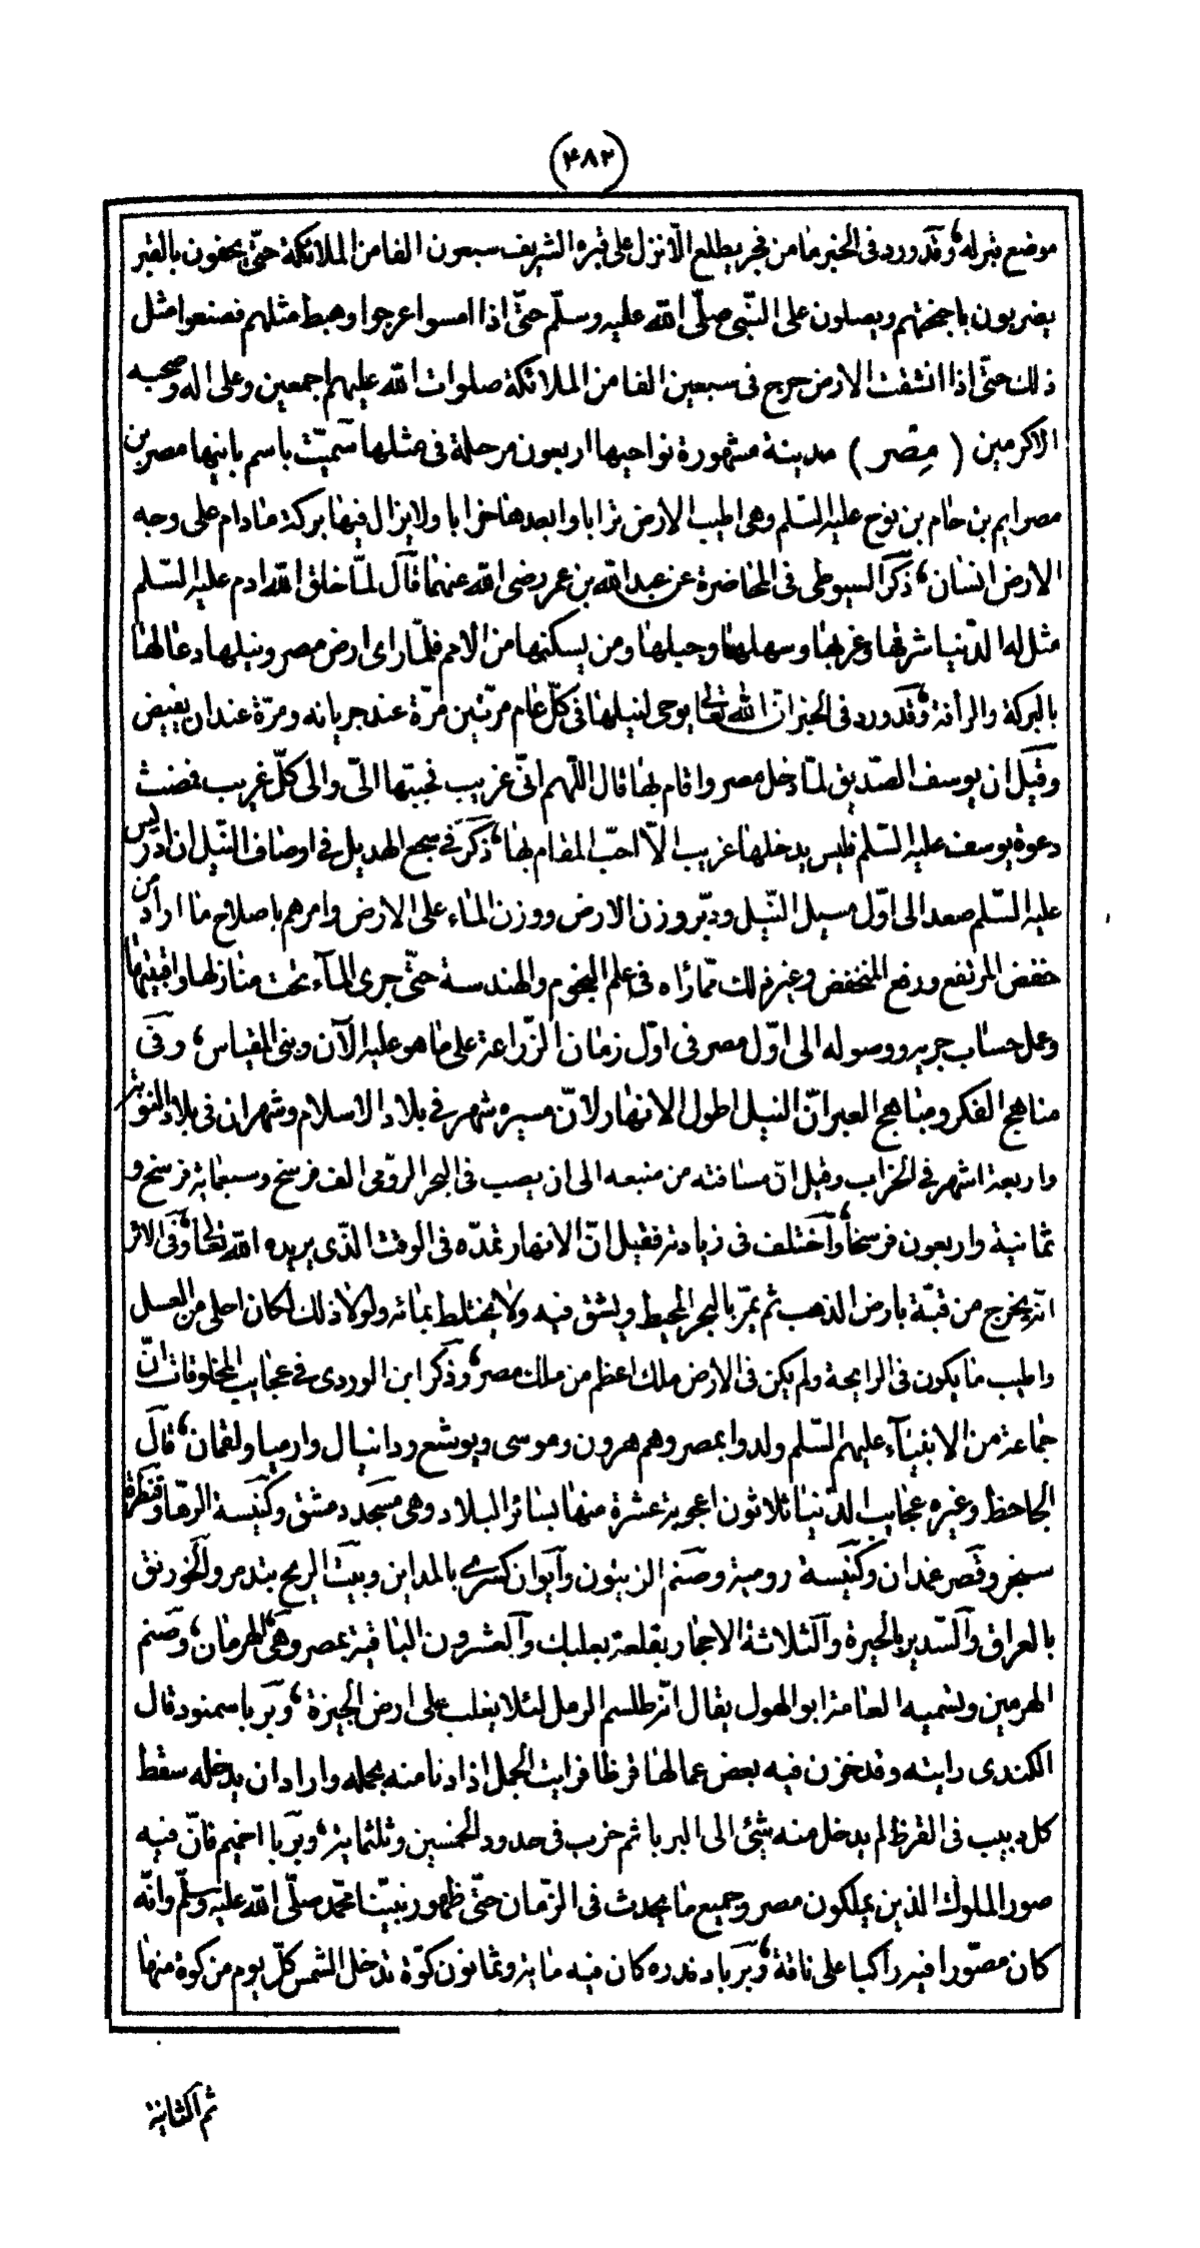 (٤٨٢)
موضع قبر له، وقد ورد فى الخبر ما من فجر يطلع الّا نزل على قبره الشريف سبعون الفا من الملائكة حتّى يحفون بالقبر
يضربون باجنحتهم ويصلون على النّبى صلّى الله عليه وسلّم حتّى اذا امسوا عرجوا وهبط مثلهم فصنعوا مثل
ذلك حتّى اذا انشقت الارض خرج فى سبعين الفا من الملائكة صلوات الله عليهم اجمعين وعلى اله وصحبه
الاكرمين ( مِصر ) مدينة مشهورة نواحيها اربعون مرحلة فى مثلها سمّيت باسم بانيها مصر بن
مصرايم بن حام بن نوح عليه السّلم وهى اطيب الارض ترابا وابعدها خرابا ولا يزال فيها بركة ما دام على وجه
الارض انسان، ذكر السيوطى فى المحاضرة عن عبد الله بن عمر رضى الله عنهما قال لمّا خلق الله ادم عليه السّلم
مثل له الدّنيا شرقها وغربها وسهلها وجبلها ومن يسكنها من الامم فلمّا راى ارض مصر ونيلها دعا لها
بالبركة والرأفة، وقد ورد فى الخبر انّ الله تعالى يوحى لنيلها فى كلّ عام مرّتين مرّة عند جريانه ومرّة عند ان يغيض
وقيل ان يوسف الصدّيق لمّا دخل مصر واقام بها قال اللّهم انّى غريب فحبّبها الىّ والى كلّ غريب فمضت
دعوة يوسف عليه السّلم فليس يدخلها غريب الّا احبّ المقام بها، ذكر فى سجع الهديل فى اوصاف النّيل ان ادريس
عليه السّلم صعد الى اوّل مسيل النّيل ودبّر وزن الارض ووزن الماء على الارض وامرهم باصلاح ما اراد من
خفض المرتفع ورفع المنخفض وغير ذلك ممّا رآه فى علم النجوم والهندسة حتّى جرى المآء تحت منازلها وافنيتها
وعمل حساب جريه ووصوله الى اوّل مصر فى اوّل زمان الزّراعة على ما هو عليه الآن وبنى المقياس، وفى
مناهج الفكر ومباهج العبر انّ النيل اطول الانهار لانّ مسيره شهر فى بلاد الاسلام وشهران فى بلاد النوبة
واربعة اشهر فى الخراب وقيل انّ مسافته من منبعه الى ان يصب فى البحر الرّومى الف فرسخ وسبعماية فرسخ و
ثمانية واربعون فرسخا، واختلف فى زيادته فقيل انّ الانهار تمدّه فى الوقت الّذى يريده الله تعالى، وفى الاثر
انّه يخرج من قبّة بارض الذهب ثم يمرّ بالبحر المحيط ويشق فيه ولا يختلط بمائه ولولا ذلك لكان احلى من العسل
واطيب ما يكون فى الرايحة ولم يكن فى الارض ملك اعظم من ملك مصر، وذكر ابن الوردى فى عجايب المخلوقات انّ
جماعة من الانبيآء عليهم السّلم ولدوا بمصر وهم هرون وموسى ويوشع ودانيال وارميا ولقمان، قال
الجاحظ وغيره عجايب الدّنيا ثلاثون اعجوبة عشرة منها بسائر البلاد وهى مسجد دمشق وكنيسة الرّها وقنطرة
سنجر وقصر غمدان وكنيسة رومية وصنم الزيتون وايوان كسرى بالمداين وبيت الريح بتدمر والخورنق
بالعراق والسّدير بالحيرة والثلاثة الاحجار بقلعة بعلبك والعشرون الباقية بمصر وهى الهرمان، وصنم
الهرمين وتسميه العامة ابو الهول يقال انّه طلسم الرمل لئلا يغلب على ارض الجيزة، وبربا سمنود قال
الكندى رايته وقد خزن فيه بعض عمالها قرظا فرايت الجمل اذا دنا منه بحمله واراد ان يدخله سقط
كل دبيب فى القرظ لم يدخل منه شئ الى البربا ثم خرب فى حدود الخمسين وثلثماية، وبربا اخميم فانّ فيه
صور الملوك الذين يملكون مصر وجميع ما يحدث فى الزّمان حتّى ظهور نبيّنا محمّد صلّى الله عليه وسلّم وانّه
كان مصوّرا فيه راكبا على ناقة، وبربا دندره كان فيه ماية وثمانون كوّة تدخل الشمس كلّ يوم من كوة منها
ثم الثانية